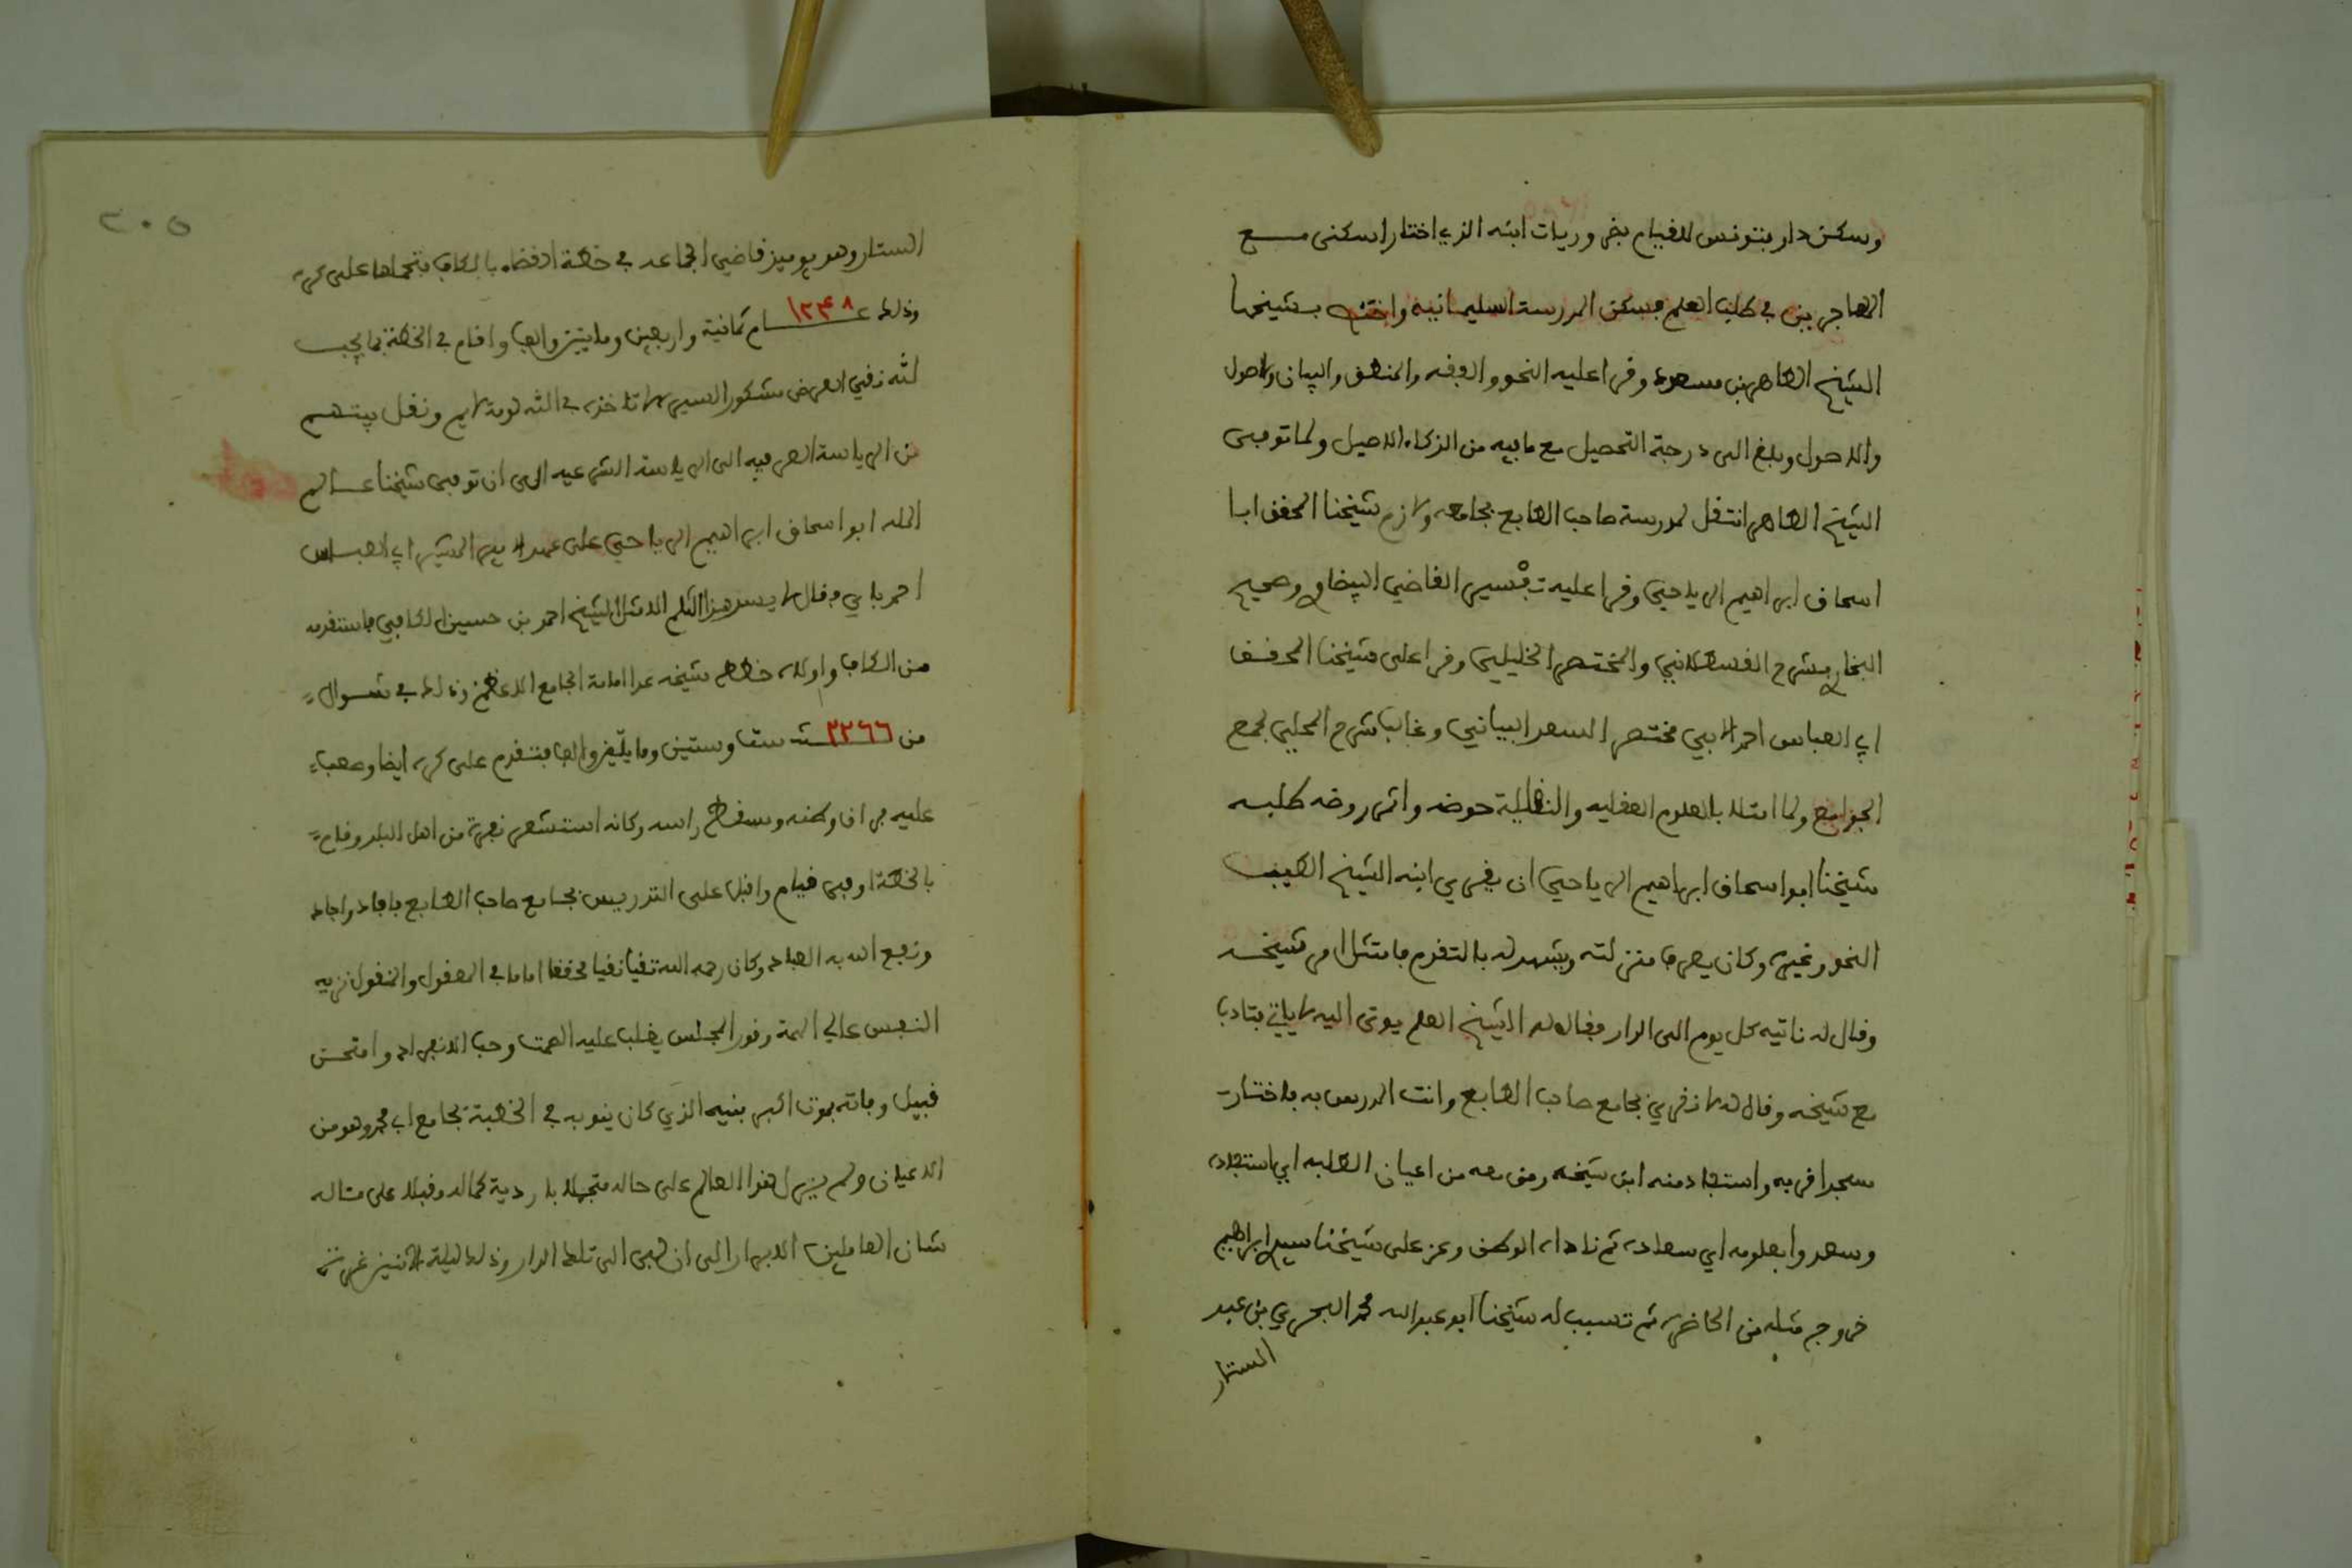 وسكن دار بتونس للقيام بضروريات ابنه الذي اختار اسكنى مع
المهاجرين في طلب العلم فسكن المدرسة السليمانية واختص بشيخها
الشيخ الطاهر بن مسعود وقرا عليه النحو والفقه والمنطق والبيان والاصول
والاصول وبلغ الى درجة التحصيل مع ما فيه من الذكاء الاصيل ولما توفى
الشيخ الطاهر انتقل لمدرسة صاحب الطابع بجامعه ولازم شيخنا المحقق ابا
اسحاق ابراهيم الرياحي وقرا عليه تفسير القاضي البيضاوي وصحيح
البخاري بشرح القسطلاني والمختصر الخليلي وقرا على شيخنا المحقق
ابي العباس احمد الابي مختصر السعد البياني وغالب شرح المحلي لجمع
الجوامع ولما امتلا بالعلوم العقليه والنقلية حوضه واثمر روضه طلبه
شيخنا ابو اسحاق ابراهيم الرياحي ان يقري ابنه الشيخ الطيب
النحو وغيره وكان يعرف منزلته ويشهد له بالتقدم فامتثل امر شيخه
وقال له ناتيه كل يوم الى الدار فقال له الشيخ العلم يوتى اليه لا ياتي فتادب
مع شيخه وقال له لا نقري بجامع صاحب الطابع وانت المدرس به فاختار
سجدا قربه واستفاد منه ابن شيخه ومن معه من اعيان الطلبه اي استفاده
وسعدوا بعلومه اي سعاده ثم ناداه الوطن وعز على شيخنا سيدي ابراهيم
خروج مثله من الحاضره ثم تسبب له شيخنا ابو عبد الله محمد البحري بن عبد
الستار
٢٠٥
الستار وهو يوميذ قاضي الجماعه في خطة القضاء بالكاف فتحملها على كره
وذلك عام ١٢٤٨ ثمانية واربعين ومايتين والف واقام في الخطة بما يجب
لله نقي العرض مشكور السيره لا تاخذه في الله لومة لايم ونقل بيتهم
من الرياسة العرفيه الى الرياسة الشرعيه الى ان توفى شيخنا عالم
المله ابو اسحاق ابراهيم الرياحي على عهد الامير المشير ابي العباس
احمد باي فقال لا يسد هذا الثلم الا مثل الشيخ احمد بن حسين الكافي فاستقدمه
من الكاف واولاه خطط شيخه عدا امامة الجامع الاعظم وذلك في شوال
من سنة ١٢٦٦ ست وستين ومايتين والف فتقدم على كره ايضا وصعب
عليه فراق وطنه ومسقط راسه وكانه استشعر نفرة من اهل البلد وقام
بالخطة اوفى قيام واقبل على التدريس بجامع صاحب الطابع فافاد واجاد
ونفع الله به العباد وكان رحمه الله تقيا نقيا محققا اماما في المعقول والمنقول نزيه
النفس عالي الهمة وقور المجلس يغلب عليه الصمت وحب الانفراد وامتحن
قبيل وفاته بموت اكبر بنيه الذي كان ينوبه في الخطبة بجامع ابي محمد وهو من
الاعيان ولم يزل هذا العالم على حاله متجملا باردية كماله مقبلا على مثاله
شان العاملين الابرار الى ان لبى الى تلك الدار وذلك ليلة الاثنين غرة